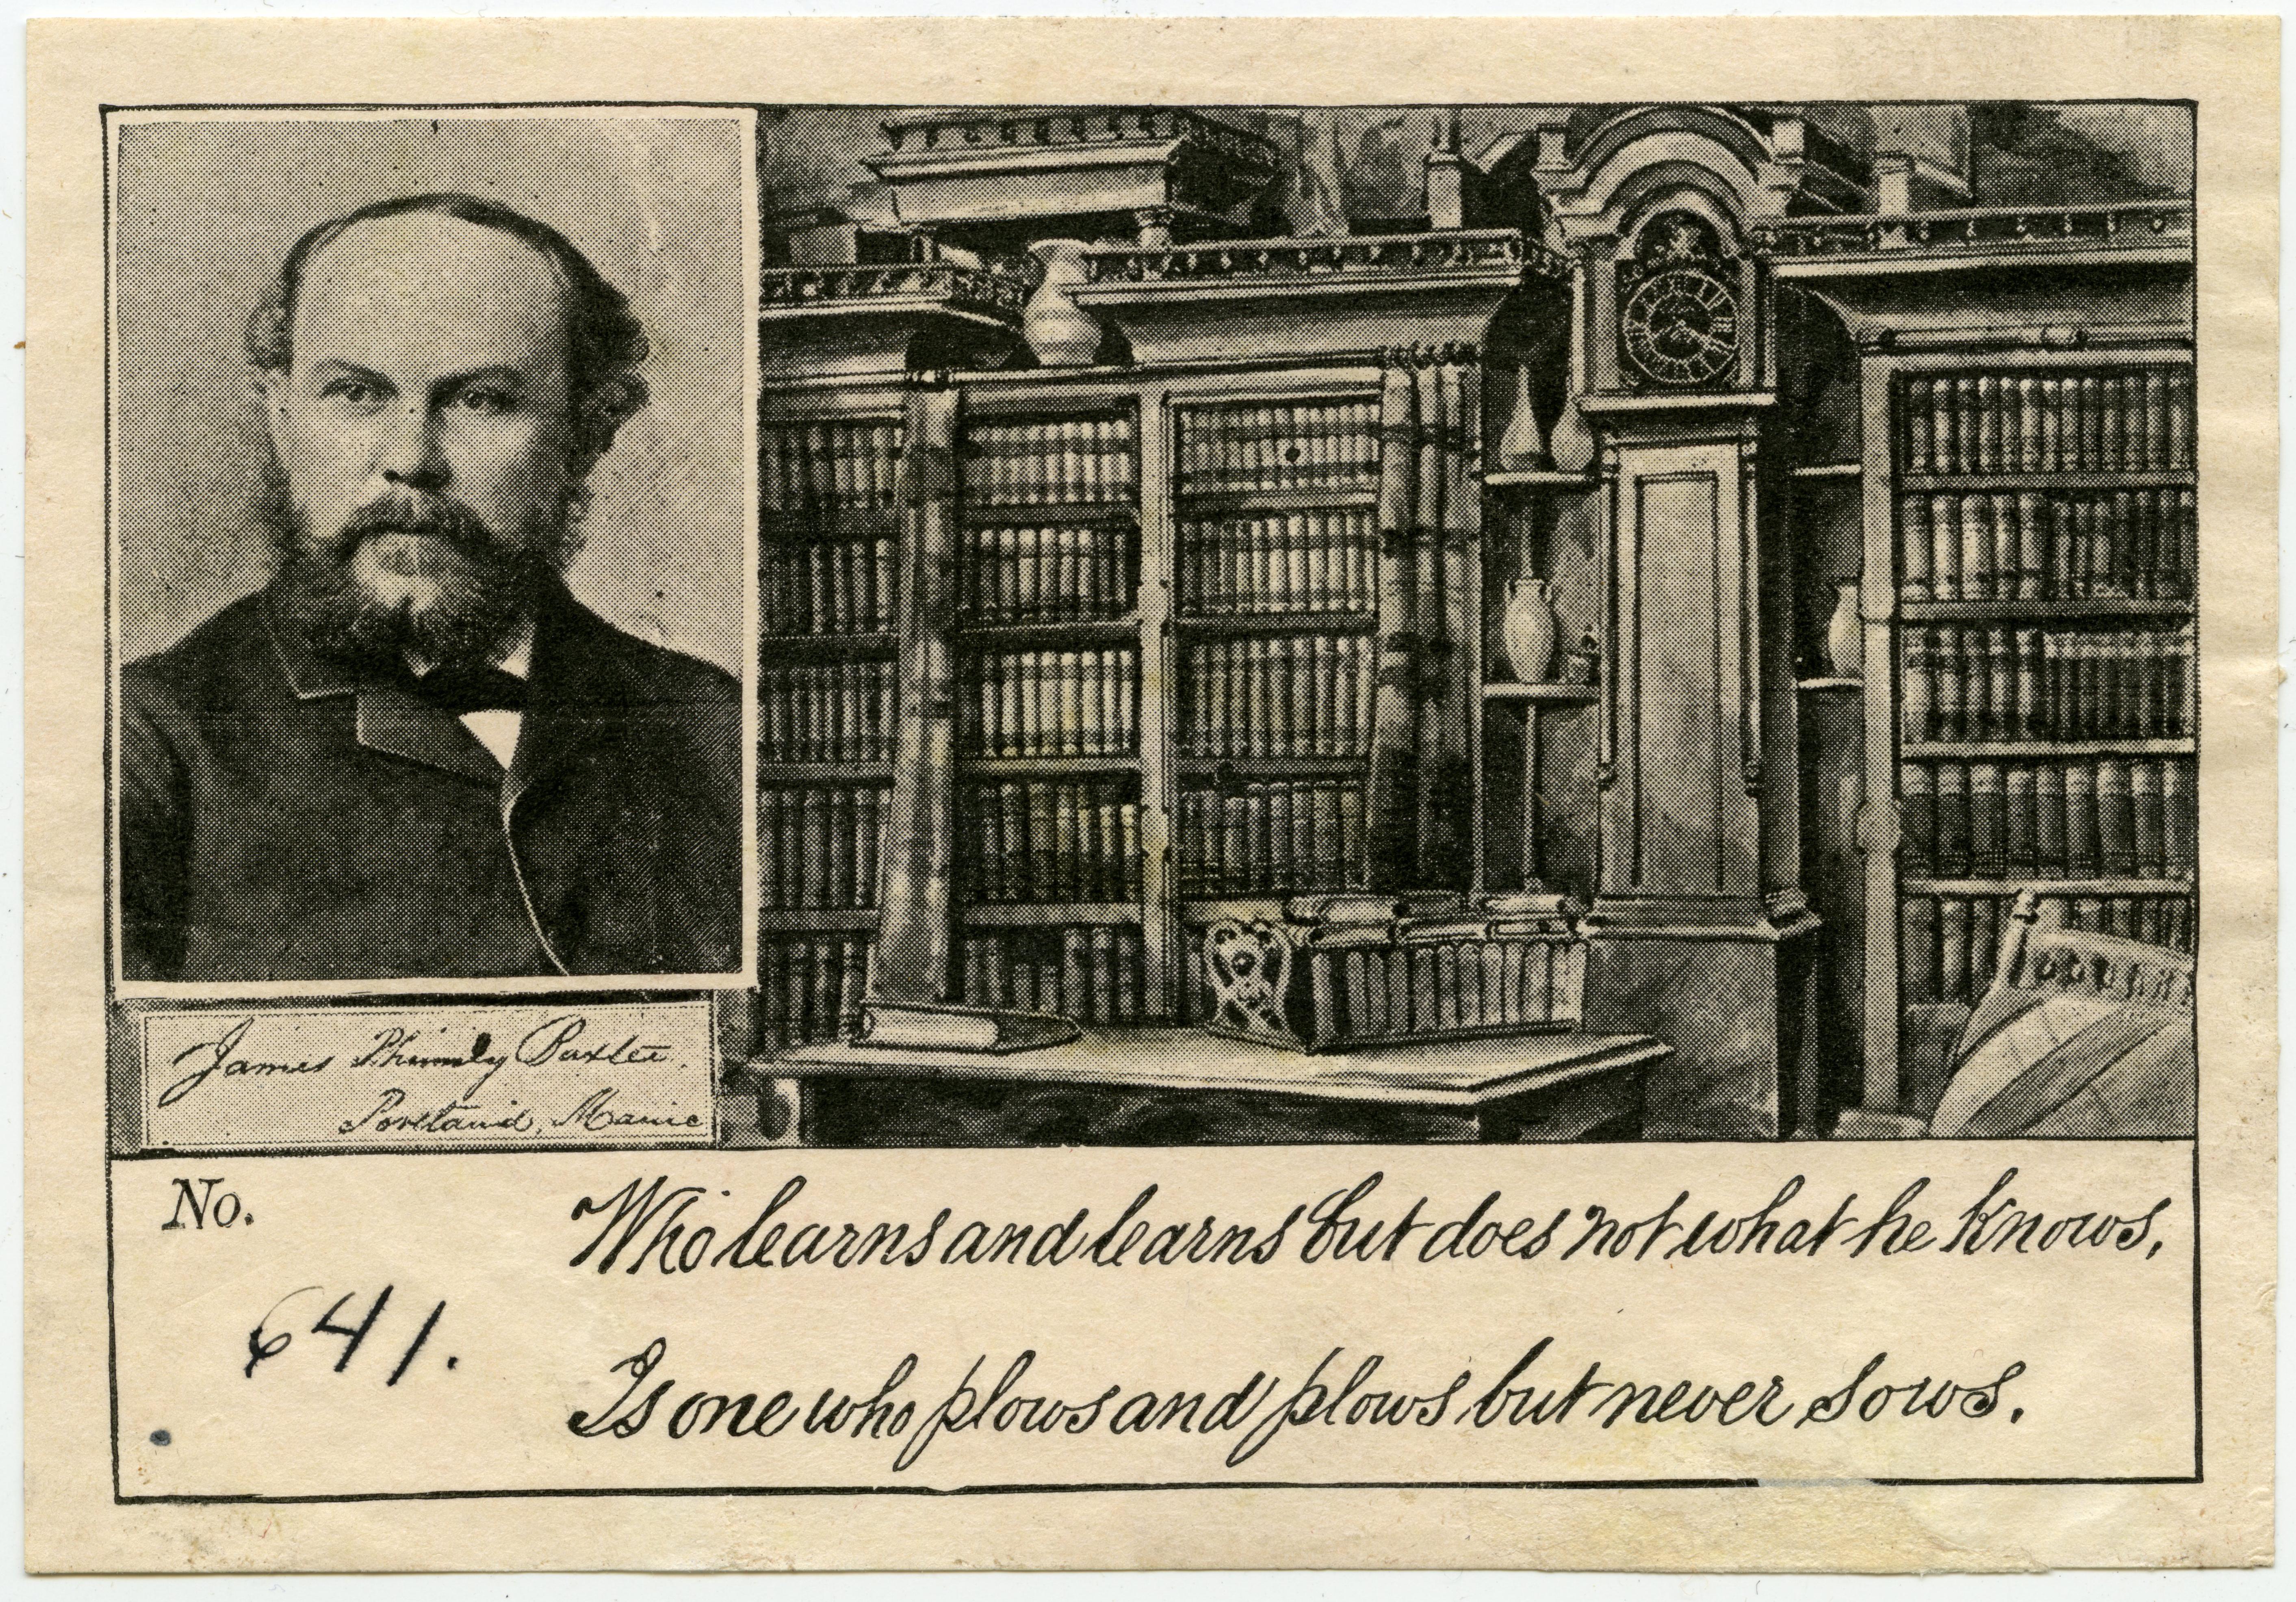 James Phinney Baxter.
Portland, Maine
No.
641.
Who learns and learns but does not what he knows,
Is one who plows and plows but never sows.